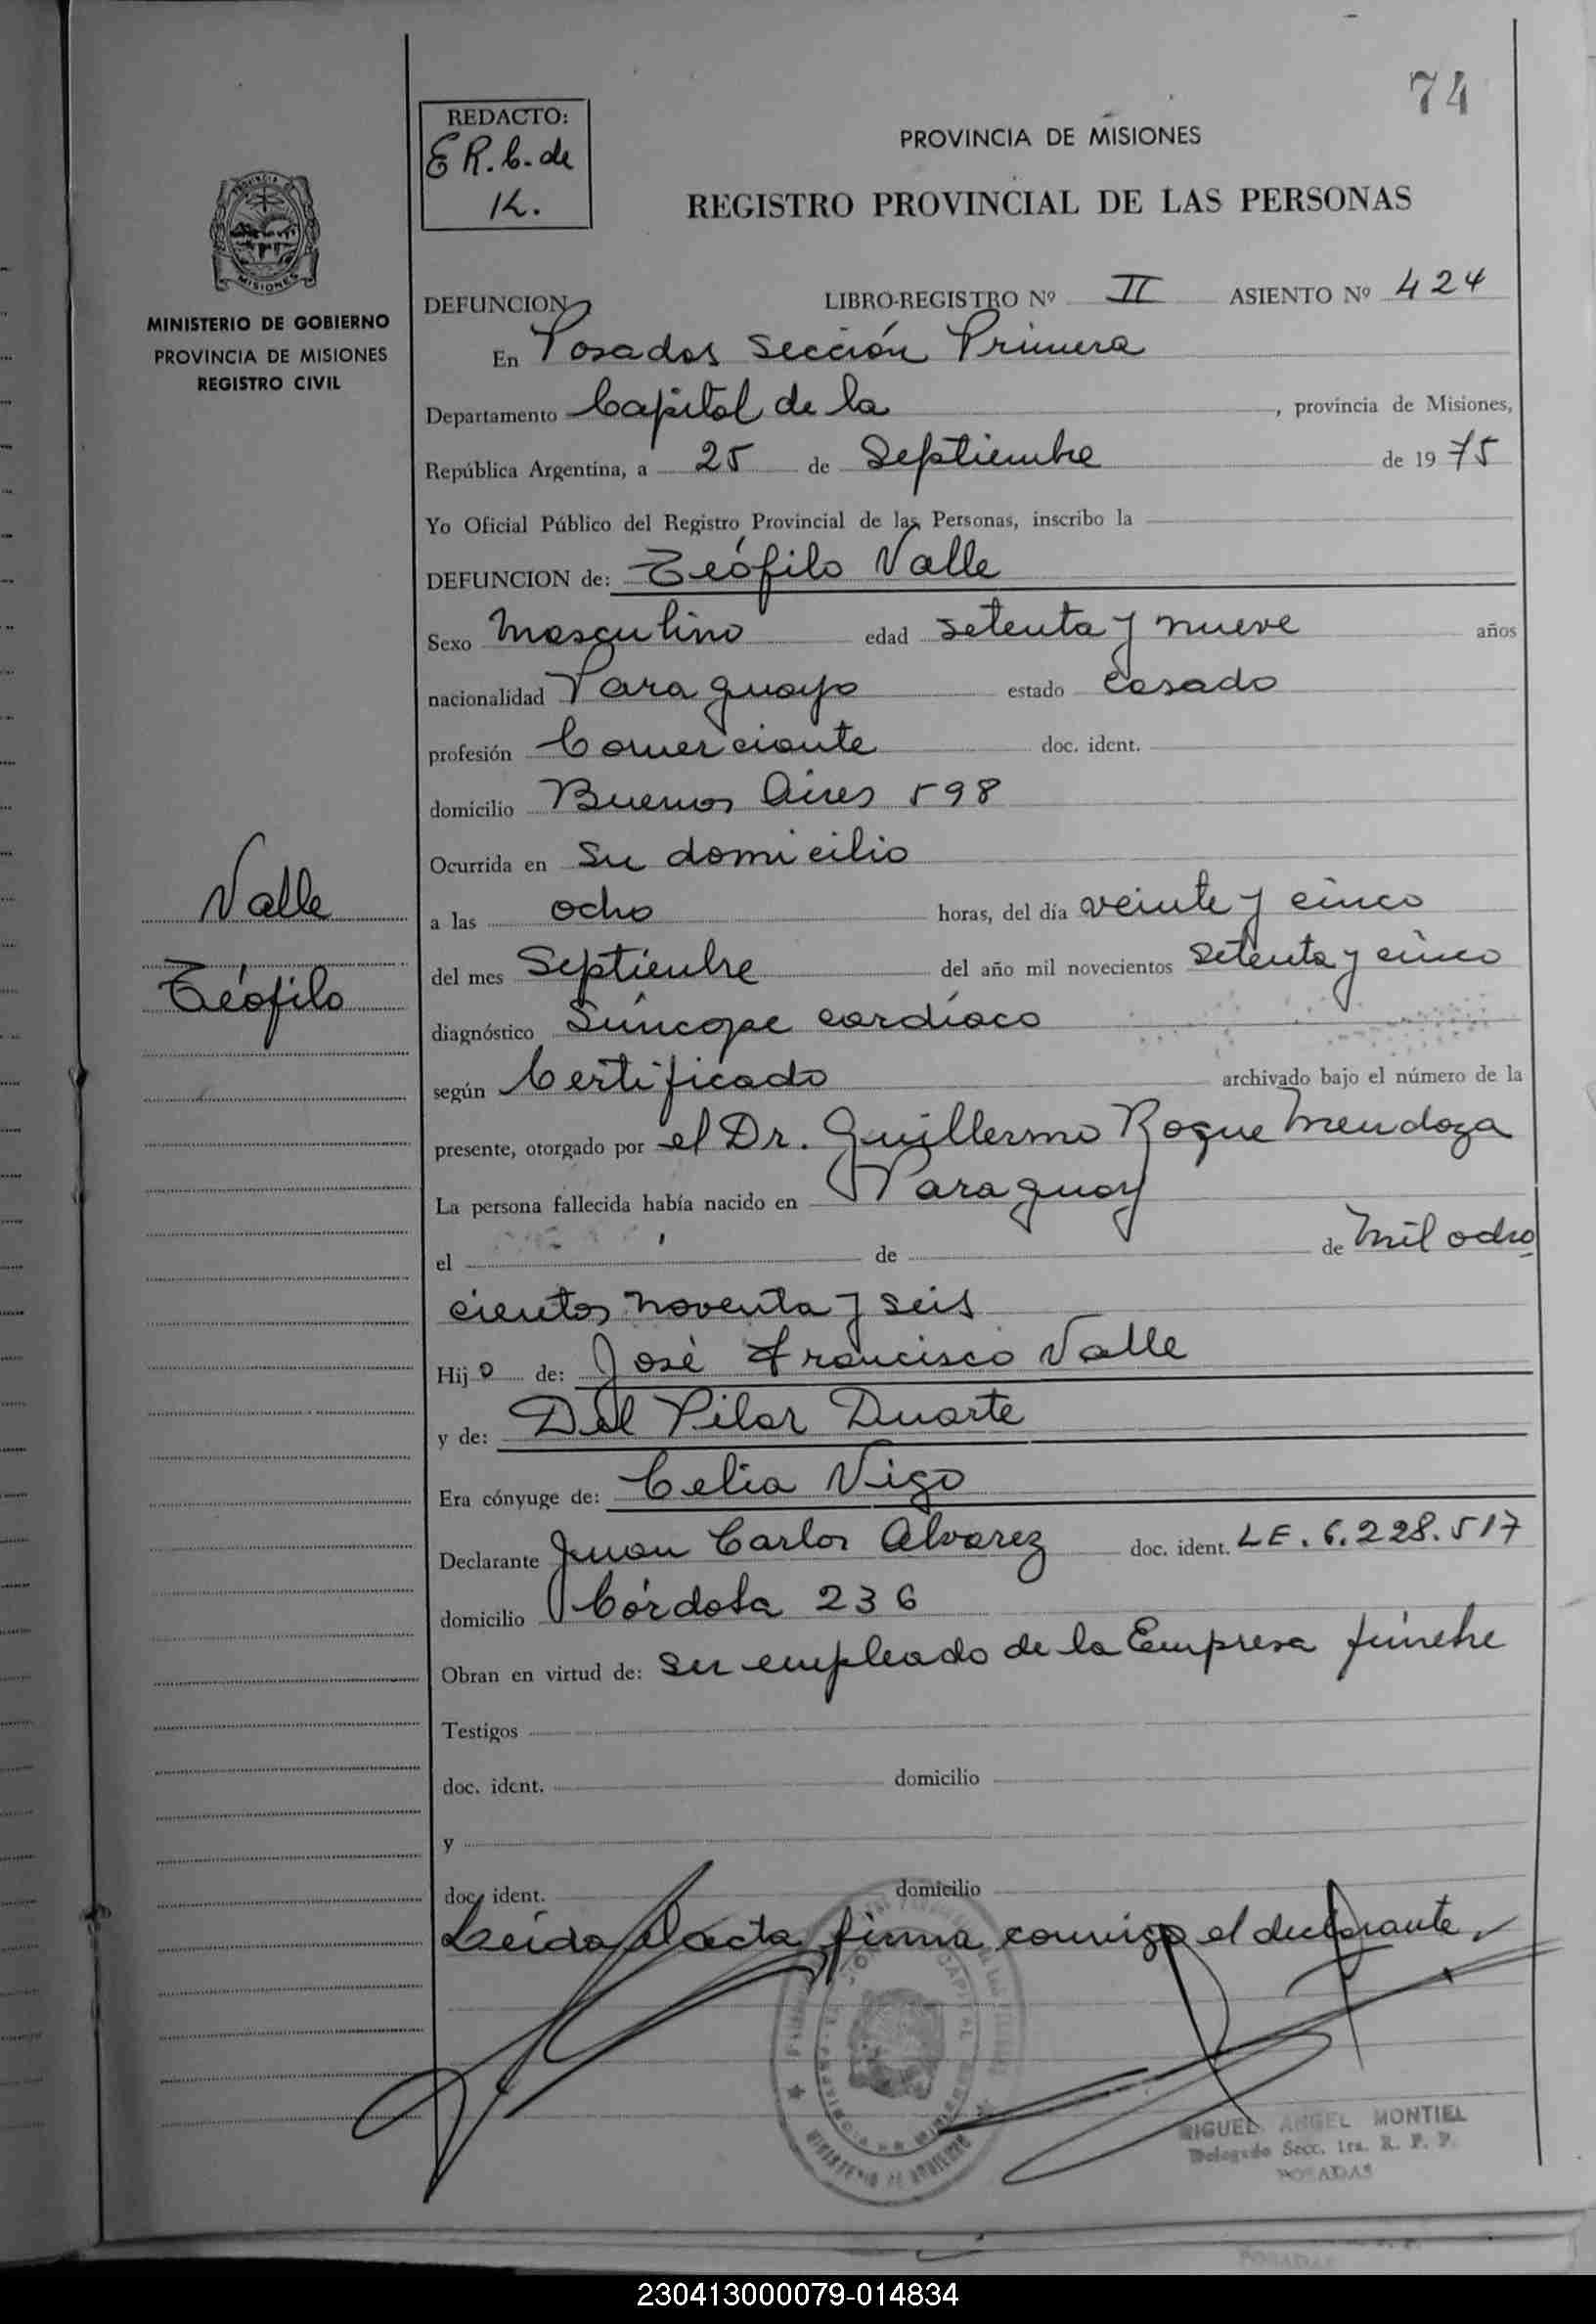 74
REDACTO:
E R. C. de
K.
PROVINCIA DE MISIONES
REGISTRO PROVINCIAL DE LAS PERSONAS
MISIONES
MINISTERIO DE GOBIERNO
PROVINCIA DE MISIONES
REGISTRO CIVIL
DEFUNCION LIBRO-REGISTRO Nº II ASIENTO Nº 424
En Posadas Sección Primera
Departamento Capital de la , provincia de Misiones,
República Argentina, a 25 de Septiembre de 1975
Yo Oficial Público del Registro Provincial de las Personas, inscribo la
DEFUNCION de: Teófilo Valle
Sexo Masculino edad setenta y nueve años
nacionalidad Paraguayo estado Casado
profesión Comerciante doc. ident.
domicilio Buenos Aires 598
Ocurrida en Su domicilio
a las ocho horas, del día veinte y cinco
del mes Septiembre del año mil novecientos setenta y cinco
diagnóstico Síncope cardíaco
según Certificado archivado bajo el número de la
presente, otorgado por el Dr. Guillermo Roque Mendoza
La persona fallecida había nacido en Paraguay
el de de Mil ocho
cientos noventa y seis
Hijo de: José Francisco Valle
y de: Del Pilar Duarte
Era cónyuge de: Celia Vigo
Declarante Juan Carlos Alvarez doc. ident. LE. 6.228.517
domicilio Córdoba 236
Obran en virtud de: Ser empleado de la Empresa fúnebre
Testigos
doc. ident. domicilio
y
doc. ident. domicilio
Leída el acta firma conmigo el declarante.
Valle
Teófilo
MIGUEL ANGEL MONTIEL
Delegado Secc. 1ra. R. P. P.
POSADAS
230413000079-014834